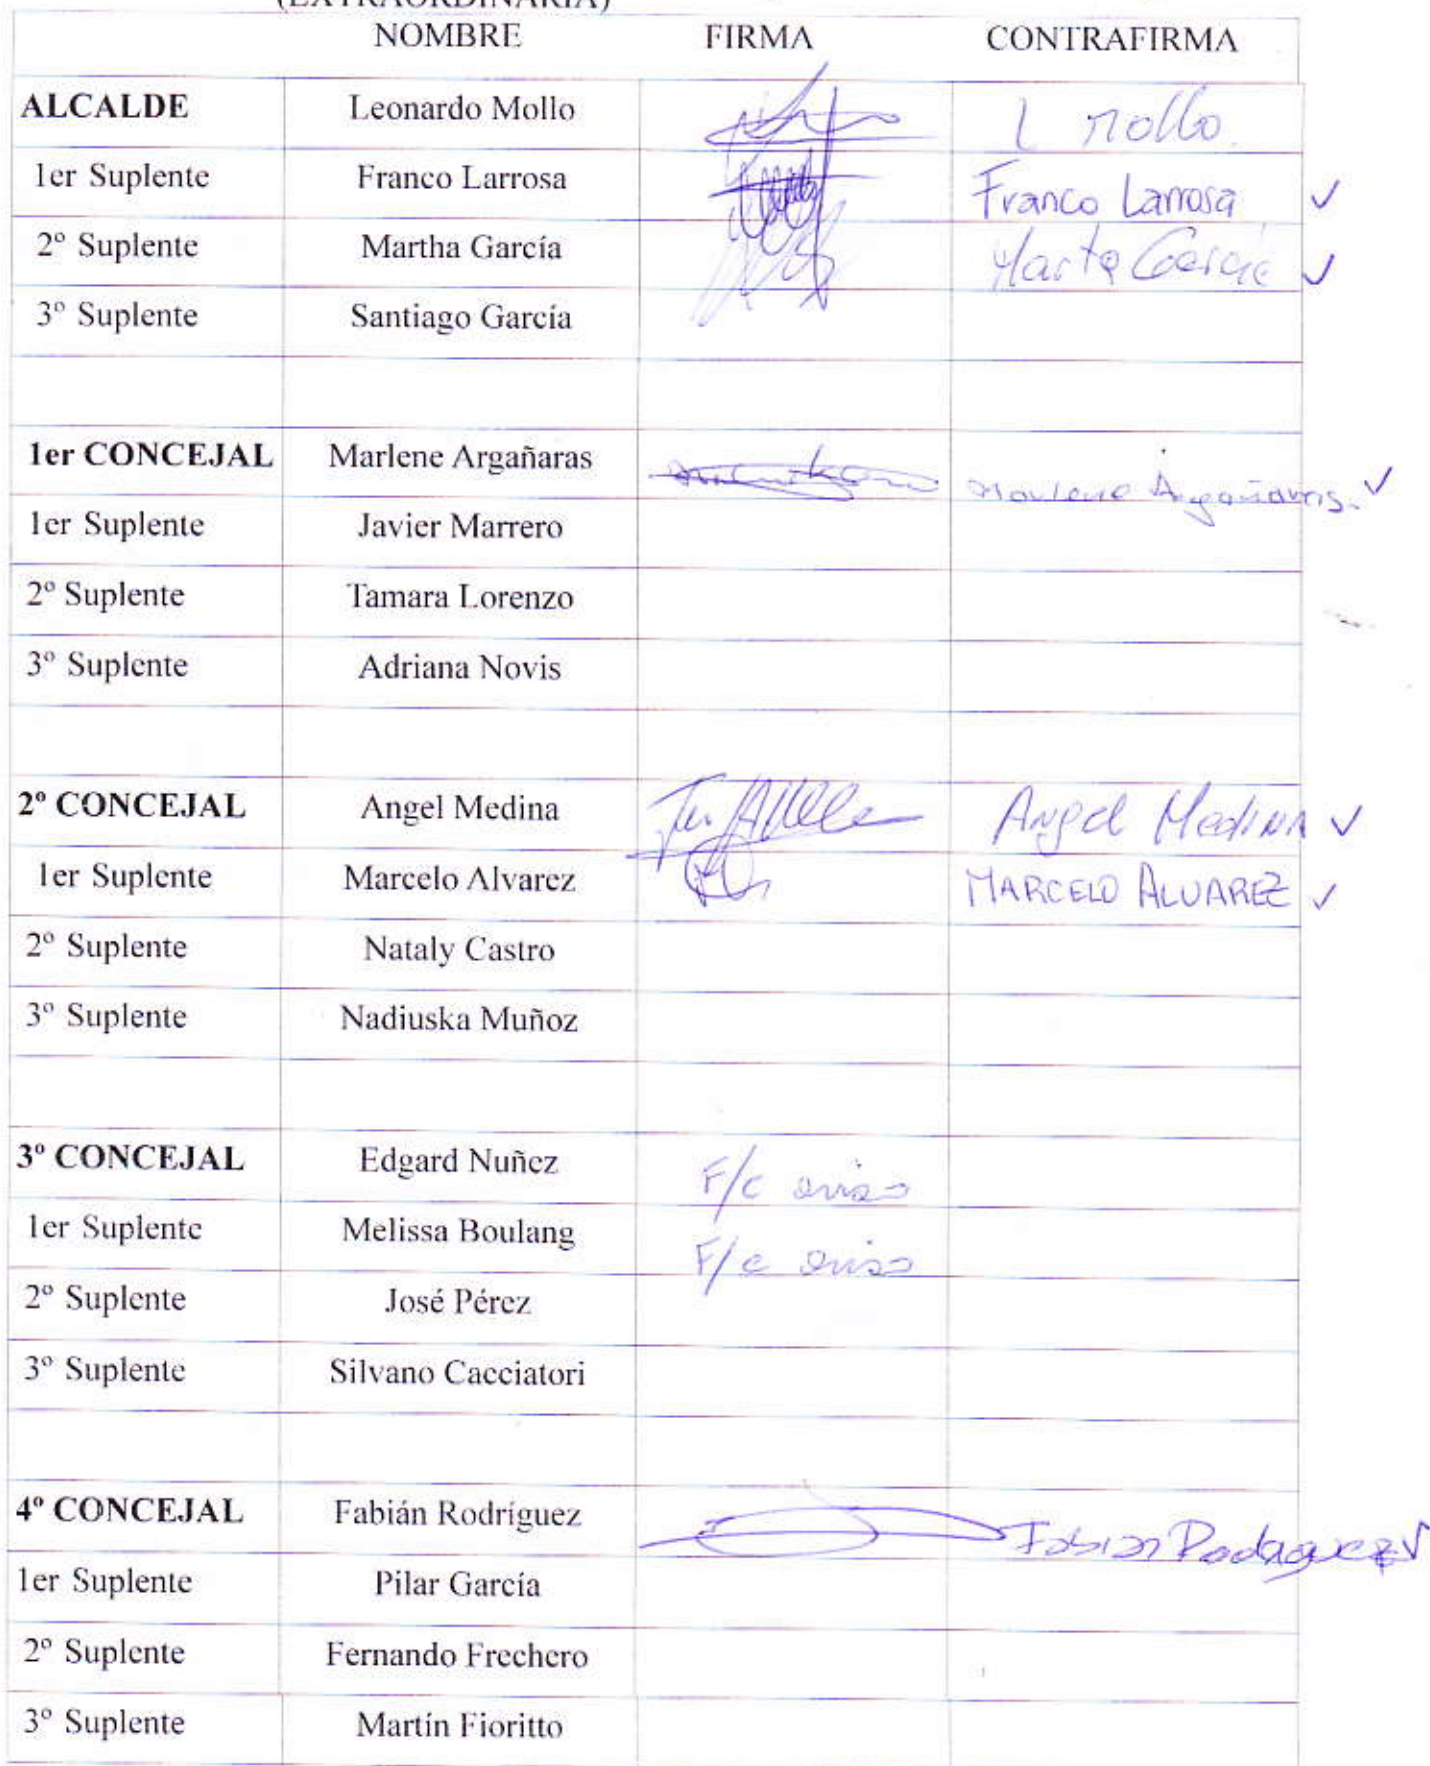 (EXTRAORDINARIA)
NOMBRE FIRMA CONTRAFIRMA
ALCALDE Leonardo Mollo L Mollo.
1er Suplente Franco Larrosa Franco Larrosa ✓
2º Suplente Martha García Marta Garcia ✓
3º Suplente Santiago García
1er CONCEJAL Marlene Argañaras Marlene Argañaras. ✓
1er Suplente Javier Marrero
2º Suplente Tamara Lorenzo
3º Suplente Adriana Novis
2º CONCEJAL Angel Medina Angel Medina ✓
1er Suplente Marcelo Alvarez MARCELO ALVAREZ ✓
2º Suplente Nataly Castro
3º Suplente Nadiuska Muñoz
3º CONCEJAL Edgard Nuñez F/c aviso
1er Suplente Melissa Boulang F/c aviso
2º Suplente José Pérez
3º Suplente Silvano Cacciatori
4º CONCEJAL Fabián Rodríguez Fabian Rodriguez ✓
1er Suplente Pilar García
2º Suplente Fernando Frechero
3º Suplente Martín Fioritto